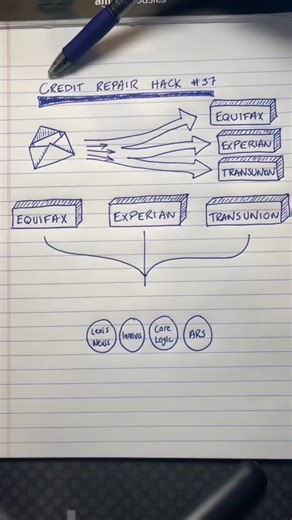 CREDIT REPAIR HACK #37
EQUIFAX
EXPERIAN
TRANSUNION
EQUIFAX EXPERIAN TRANSUNION
Lexis Nexis
Innovis
Core Logic
ARS